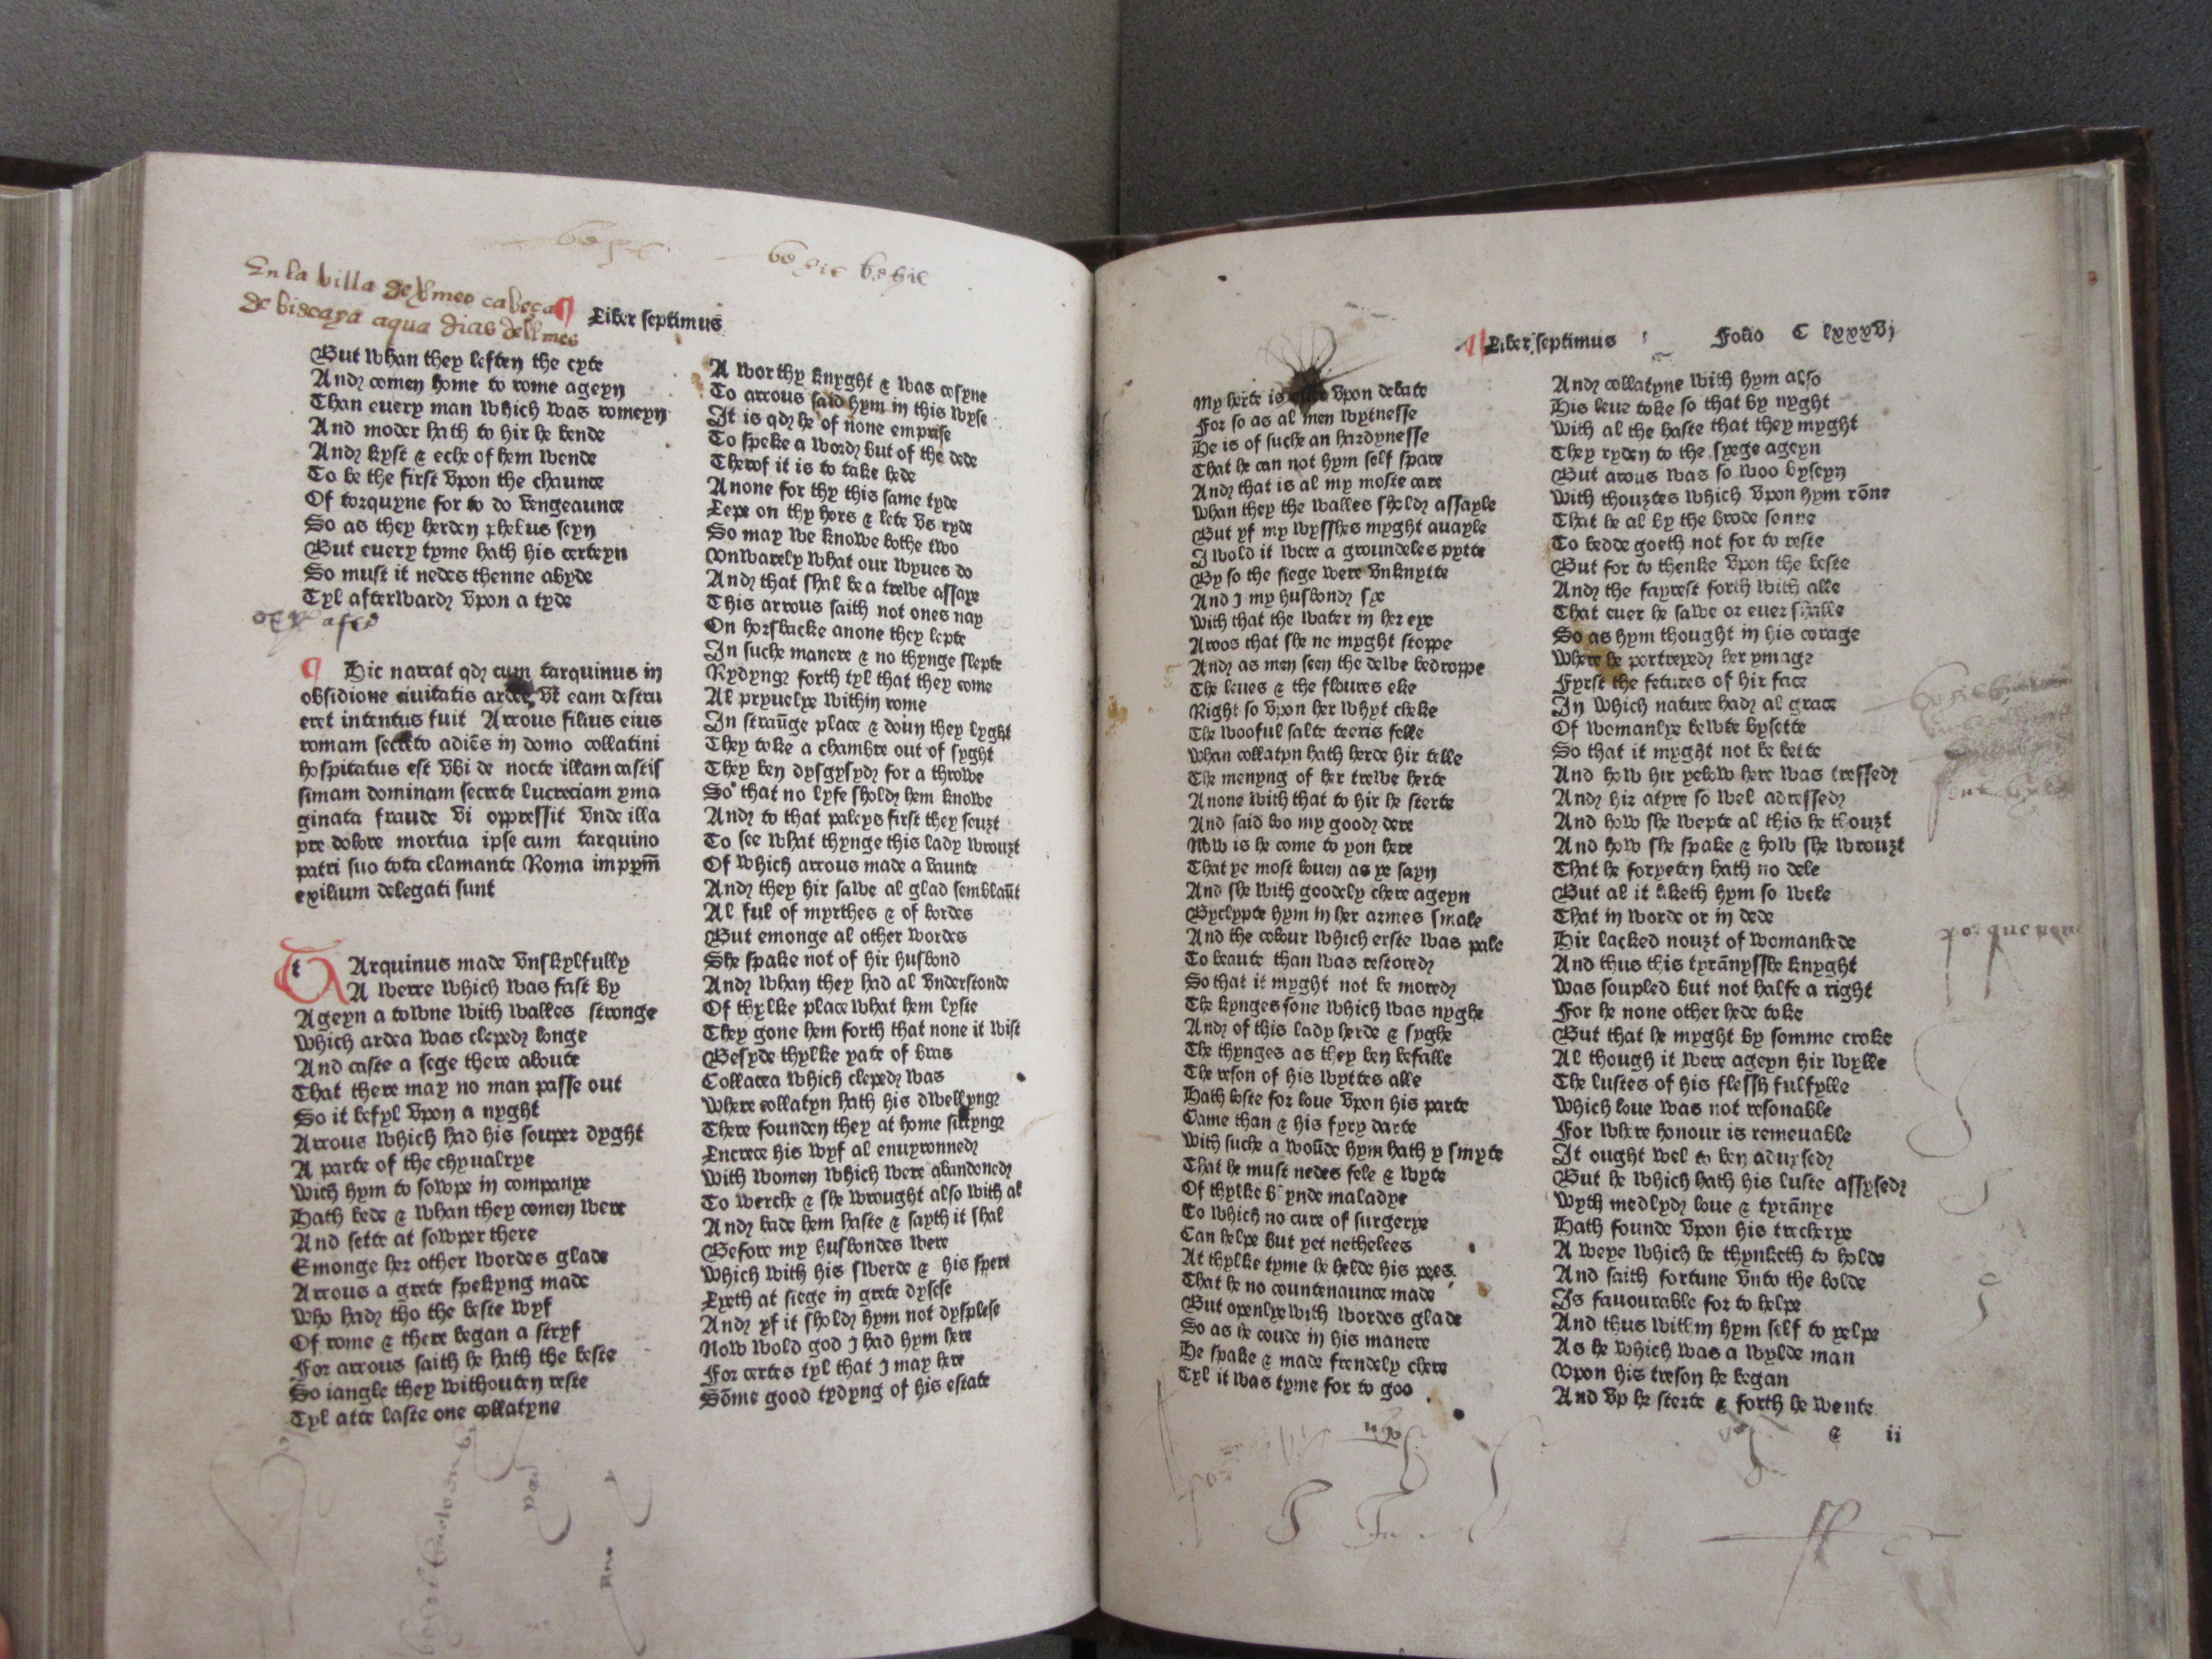 En la villa de bermeo cabeça
de biscaya a qua dias dell mes
Liber septimus
But whan they leften the cyte
And comen home to rome ageyn
Than euery man which was romeyn
And moder hath to hir he bende
And kyst & eche of hem wende
To be the first vpon the chaunce
Of torquyne for to do vengeaunce
So as they herden phebus seyn
But euery tyme hath his certeyn
So must it nedes thenne abyde
Tyl afterward vpon a tyde
¶ Hic narrat qd cum tarquinus in
obsidione ciuitatis ardee vt eam destru
eret intentus fuit Arrous filius eius
romam secreto adiēs in domo collatini
hospitatus est vbi de nocte illam castis
simam dominam secrete lucreciam yma
ginata fraude vi oppressit vnde illa
pre dolore mortua ipse cum tarquino
patri suo tota clamante Roma in ppm̄
exilium delegati sunt
TArquinus made vnskylfully
A werre which was fast by
Ageyn a towne with walles stronge
Which ardea was cleped longe
And caste a sege there aboute
That there may no man passe out
So it befyl vpon a nyght
Arrous which had his souper dyght
A parte of the chyualrye
With hym to sowpe in companye
Hath bede & whan they comen were
And sette at sowper there
Emonge her other wordes glade
Arrous a grete spekyng made
Who had tho the beste wyf
Of rome & there began a stryf
For arrous saith he hath the beste
So iangle they withouten reste
Tyl atte laste one collatyne
A worthy knyght & was cosyne
To arrous said hym in this wyse
It is qd he of none emprise
To speke a word but of the dede
Therof it is to take hede
Anone for thy this same tyde
Lepe on thy hors & lete vs ryde
So may we knowe bothe two
Vnwarely what our wyues do
And that shal be a trewe assaye
This arrous saith not ones nay
On horsbacke anone they lepte
In suche manere & no thynge slepte
Rydyng forth tyl that they come
Al pryuelye within rome
In straūge place & doun they lyght
They toke a chambre out of syght
They ben dysgysyd for a throwe
So that no lyfe shold hem knowe
And to that paleys first they souzt
To see what thynge this lady wrouzt
Of which arrous made a vaunte
And they hir sawe al glad semblaūt
Al ful of myrthes & of bordes
But emonge al other wordes
She spake not of hir husbond
And whan they had al vnderstonde
Of thylke place what hem lyste
They gone hem forth that none it wist
Besyde thylke yate of bras
Collacea which cleped was
Where collatyn hath his dwellyng
There founden they at home sittyng
Lucrece his wyf al enuyronned
With women which were abandoned
To werche & she wrought also with al
And bade hem haste & sayth it shal
Before my husbondes were
Which with his swerde & his spere
Lyeth at siege in grete dysese
And yf it shold hym not dysplese
Now wold god I had hym here
For certes tyl that I may here
Sōme good tydyng of his estate
Liber septimus Folio C lxxxvj
My herte is euer vpon debate
For so as al men wytnesse
He is of suche an hardynesse
That he can not hym self spare
And that is al my moste care
Whan they the walles shold assayle
But yf my wysshes myght auayle
I wold it were a groundeles pytte
By so the siege were vnknytte
And I my husbond sye
With that the water in her eye
Aroos that she ne myght stoppe
And as men seen the dewe bedroppe
The leues & the floures eke
Right so vpon her whyt cheke
The wooful salte teeris felle
Whan collatyn hath herde hir telle
The menyng of her trewe herte
Anone with that to hir he sterte
And said loo my good dere
Now is he come to yon here
That ye most louen as ye sayn
And she with goodely chere ageyn
Byclypte hym in her armes smale
And the colour which erste was pale
To beaute than was restored
So that it myght not be mored
The kynges sone which was nyghe
And of this lady herde & syghe
The thynges as they ben befalle
The reson of his wyttes alle
Hath loste for loue vpon his parte
Came than & his fyry darte
With suche a woūde hym hath y smyte
That he must nedes fele & wyte
Of thylke blynde maladye
To which no cure of surgerye
Can helpe but yet netheles
At thylke tyme he helde his pees
That he no countenaunce made
But openlye with wordes glade
So as he coude in his manere
He spake & made frendely chere
Tyl it was tyme for to goo
And collatyne with hym also
His leue toke so that by nyght
With al the haste that they myght
They ryden to the syege ageyn
But arous was so woo byseyn
With thouztes which vpon hym rōne
That he al by the brode sonne
To bedde goeth not for to reste
But for to thenke vpon the beste
And the fayrest forth with alle
That euer he sawe or euer shalle
So as hym thought in his corage
Where he portreyed her ymage
Fyrst the fetures of hir face
In which nature had al grace
Of womanlye bewte bysette
So that it myght not be bette
And how hir yelow here was tressed
And hir atyre so wel adressed
And how she wepte al this he thouzt
And how she spake & how she wrouzt
That he foryeten hath no dele
But al it liketh hym so wele
That in worde or in dede
Hir lacked nouzt of womanhede
And thus this tyrānysshe knyght
Was soupled but not halfe a right
For he none other hede toke
But that he myght by somme croke
Al though it were ageyn hir wylle
The lustes of his flessh fulfylle
Which loue was not resonable
For where honour is remeuable
It ought wel to ben aduysed
But he which hath his luste assysed
Wyth medlyd loue & tyrānye
Hath founde vpon his trecherye
A weye which he thynketh to holde
And saith fortune vnto the bolde
Is fauourable for to helpe
And thus within hym self to yelpe
As he which was a wylde man
Vpon his treson he began
And vp he sterte & forth he wente
& ii